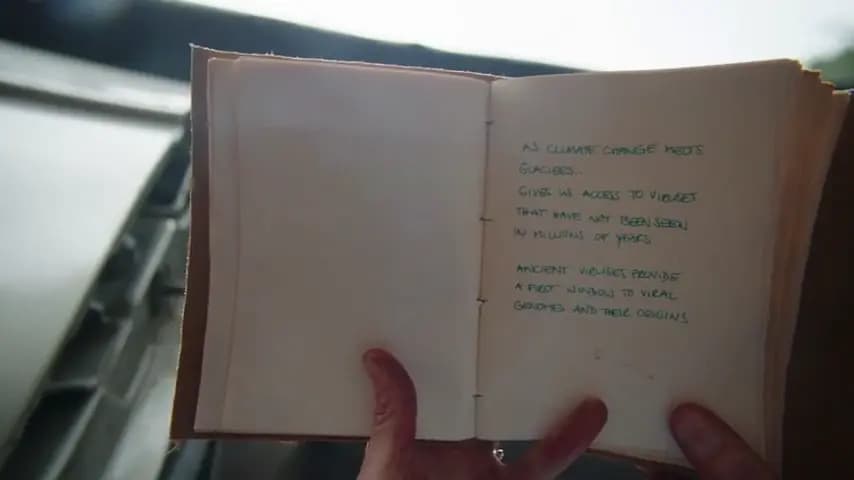 AS CLIMATE CHANGE MELTS
GLACIERS..
GIVES US ACCESS TO VIRUSES
THAT HAVE NOT BEEN SEEN
IN MILLIONS OF YEARS
ANCIENT VIRUSES PROVIDE
A FIRST WINDOW TO VIRAL
GENOMES AND THEIR ORIGINS